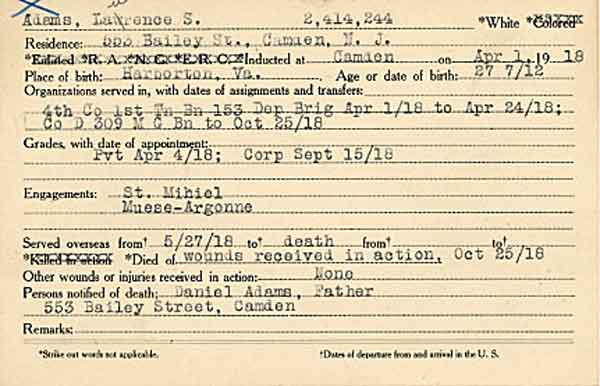 Adams, Lawrence S. 2,414,244 *White *Colored
Residence: 553 Bailey St., Camden, N. J.
*Enlisted *R. A. *N. G. *E. R. C. *Inducted at Camden on Apr 1, 19 18
Place of birth: Harborton, Va. Age or date of birth: 27 7/12
Organizations served in, with dates of assignments and transfers:
4th Co 1st Tn Bn 153 Dep Brig Apr 1/18 to Apr 24/18;
Co D 309 M G Bn to Oct 25/18
Grades, with date of appointment:
Pvt Apr 4/18; Corp Sept 15/18
Engagements: St. Mihiel
Muese-Argonne
Served overseas from† 5/27/18 to† death from† to†
*Killed in action *Died of wounds received in action, Oct 25/18
Other wounds or injuries received in action: None
Persons notified of death: Daniel Adams, Father
553 Bailey Street, Camden
Remarks:
*Strike out words not applicable. †Dates of departure from and arrival in the U. S.